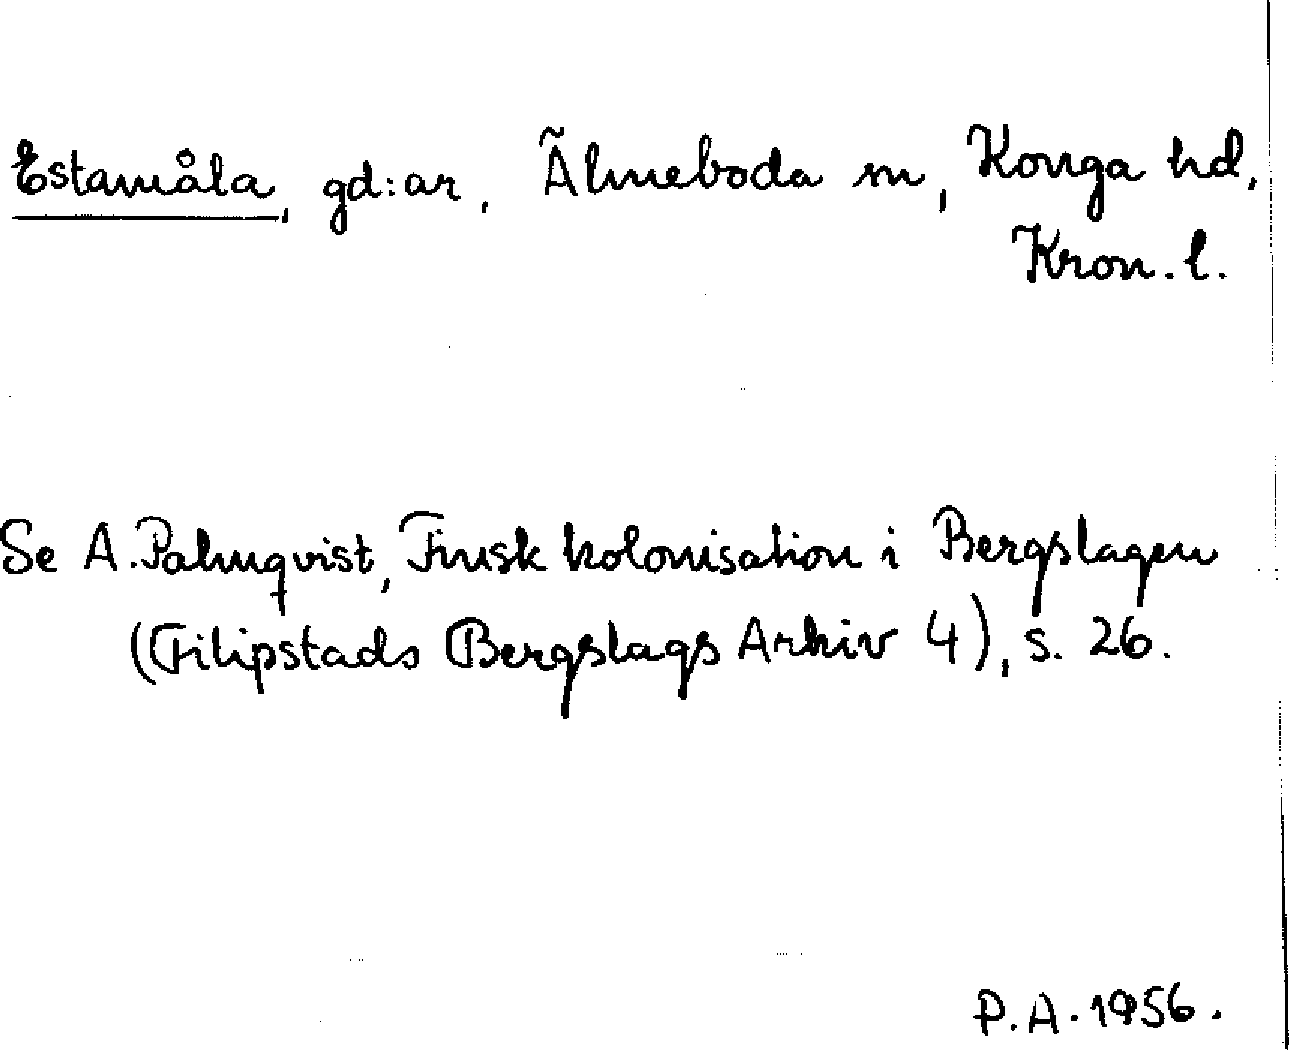 Estamåla, gd:ar, Älmeboda sn, Konga hd,
Kron. l.
Se A. Palmqvist, Finsk kolonisation i Bergslagen
(Filipstads Bergslags Arkiv 4), s. 26.
P.A. 1956.